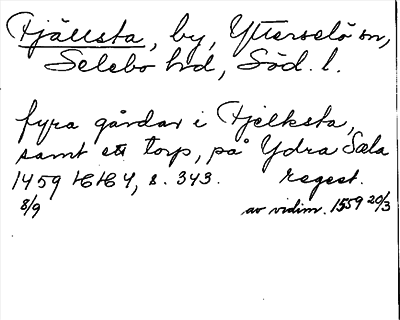 Fjällsta, by, Ytterselö sn,
Selebo hd, Söd. l.
fyra gårdar i Fjelksta,
samt ett torp, på Ydra Sæla
1459 HH 4, s. 343. regest.
8/9 av vidim. 1559 20/3